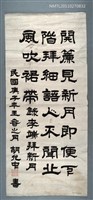 開簾見新月即便下
階拜細語人不聞北
風吹裙帶 錄李端拜新月
民國